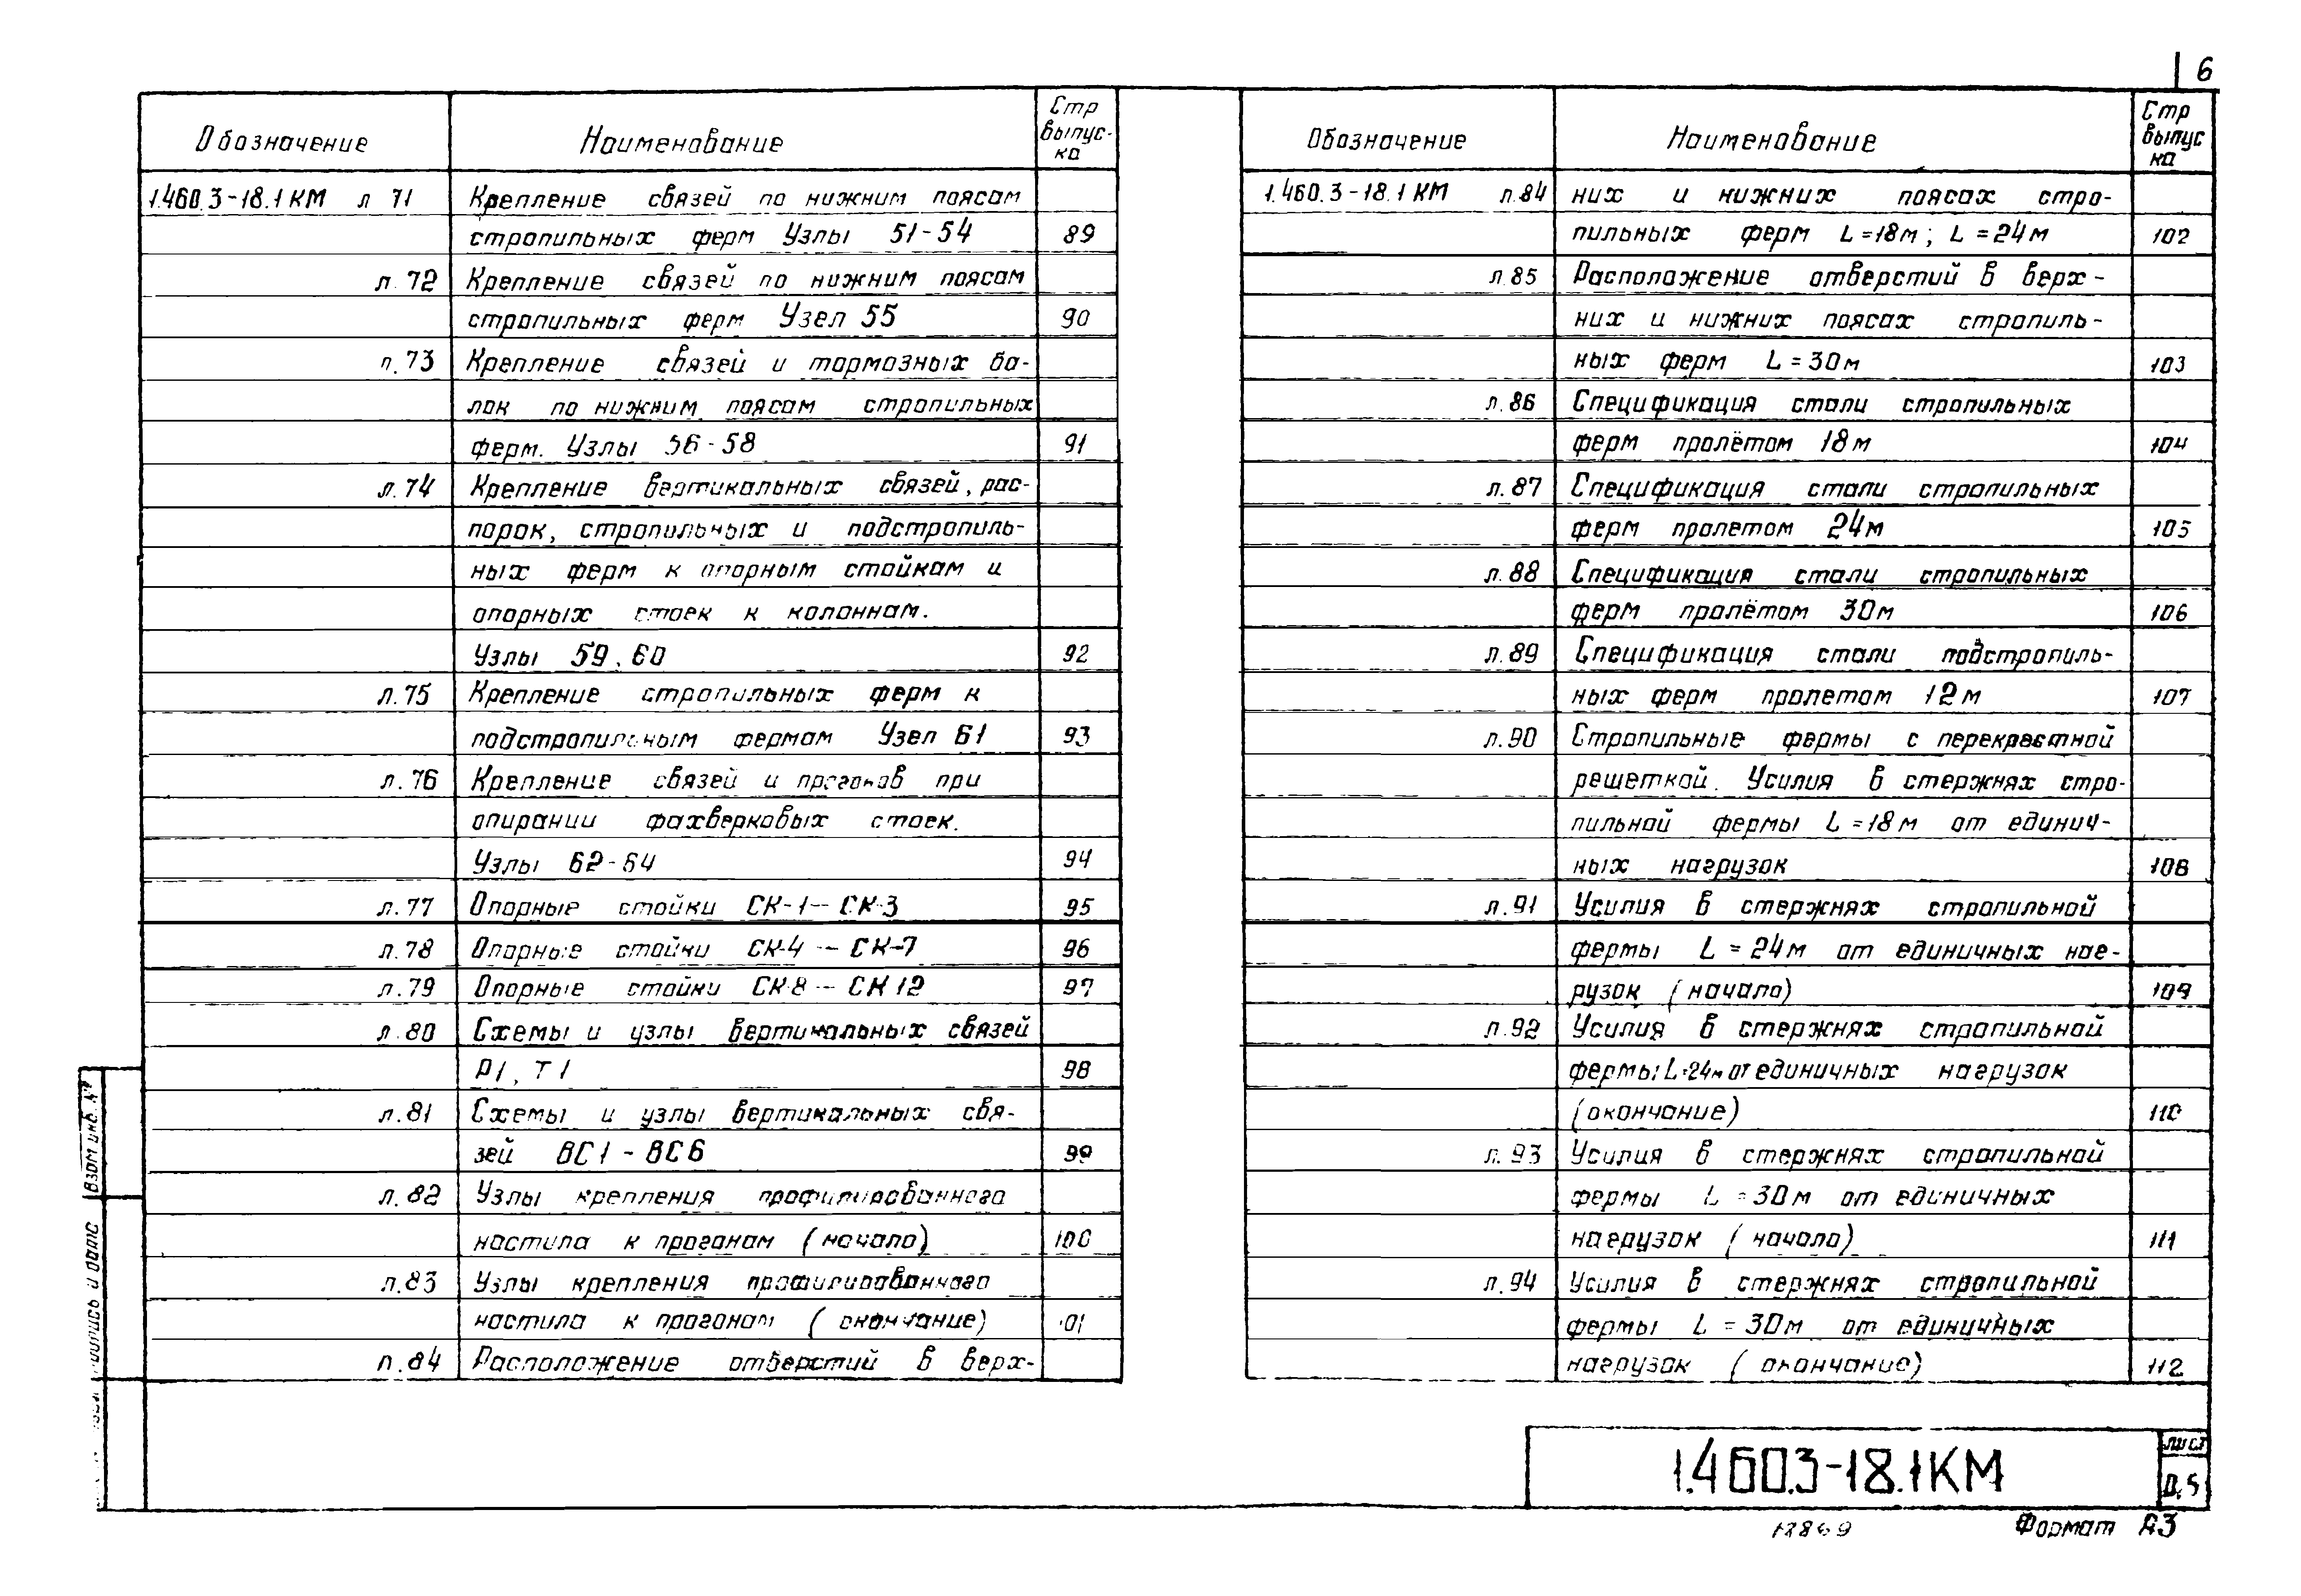 6
Обозначение Наименование Стр выпус-ка
1.460.3-18.1 КМ л 71 Крепление связей по нижним поясам
стропильных ферм Узлы 51-54 89
л. 72 Крепление связей по нижним поясам
стропильных ферм Узел 55 90
л. 73 Крепление связей и тормозных ба-
лок по нижним поясам стропильных
ферм. Узлы 56-58 91
л. 74 Крепление вертикальных связей, рас-
порок, стропильных и подстропиль-
ных ферм к опорным стойкам и
опорных стоек к колоннам.
Узлы 59, 60 92
л. 75 Крепление стропильных ферм к
подстропильным фермам Узел 61 93
л. 76 Крепление связей и прогонов при
опирании фахверковых стоек.
Узлы 62-64 94
л. 77 Опорные стойки СК-1 — СК-3 95
л. 78 Опорные стойки СК-4 — СК-7 96
л. 79 Опорные стойки СК-8 — СК 12 97
л. 80 Схемы и узлы вертикальных связей
Р1, Т1 98
л. 81 Схемы и узлы вертикальных свя-
зей ВС1 - ВС6 99
л. 82 Узлы крепления профилированного
настила к прогонам (начало) 100
л. 83 Узлы крепления профилированного
настила к прогонам (окончание) 101
л. 84 Расположение отверстий в верх-
Обозначение Наименование Стр выпус ка
1.460.3-18.1 КМ л. 84 них и нижних поясах стро-
пильных ферм L=18м; L=24м 102
л. 85 Расположение отверстий в верх-
них и нижних поясах стропиль-
ных ферм L=30м 103
л. 86 Спецификация стали стропильных
ферм пролётом 18м 104
л. 87 Спецификация стали стропильных
ферм пролетом 24м 105
л. 88 Спецификация стали стропильных
ферм пролётом 30м 106
л. 89 Спецификация стали подстропиль-
ных ферм пролетом 12м 107
л. 90 Стропильные фермы с перекрестной
решеткой. Усилия в стержнях стро-
пильной фермы L=18м от единич-
ных нагрузок 108
л. 91 Усилия в стержнях стропильной
фермы L=24м от единичных наг-
рузок (начало) 109
л. 92 Усилия в стержнях стропильной
фермы L=24м от единичных нагрузок
(окончание) 110
л. 93 Усилия в стержнях стропильной
фермы L=30м от единичных
нагрузок (начало) 111
л. 94 Усилия в стержнях стропильной
фермы L=30м от единичных
нагрузок (окончание) 112
Взам инв. №
подпись и дата
1.460.3-18.1КМ
лист
0.5
Формат А3